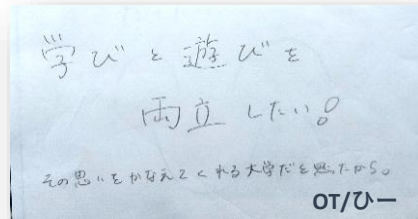 学びと遊びを
両立したい!
その思いをかなえてくれる大学だと思ったから。
OT/ひー